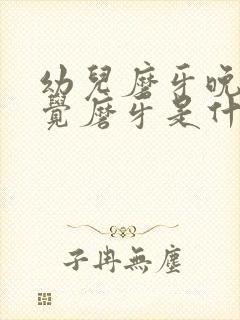 幼兒磨牙晚
覺磨牙是什
子冉無塵